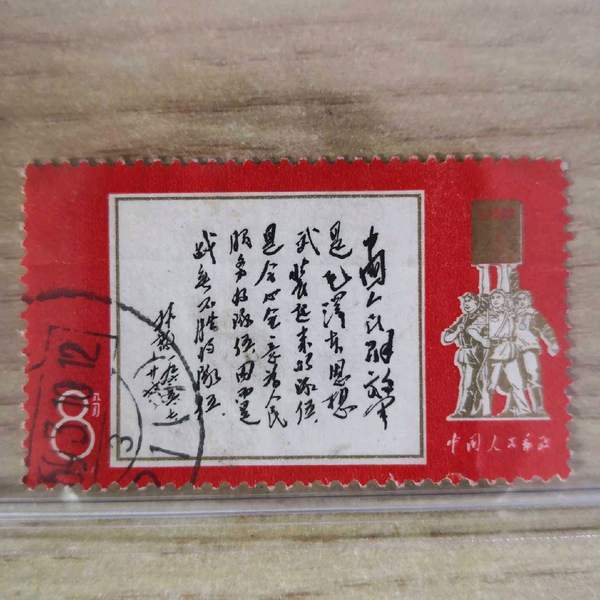 中国人民解放军
是毛泽东思想
武装起来的队伍，
是全心全意为人民
服务的队伍，因而是
战无不胜的队伍。
林彪 一九六五 七
廿六
8分
中国人民邮政
12
3